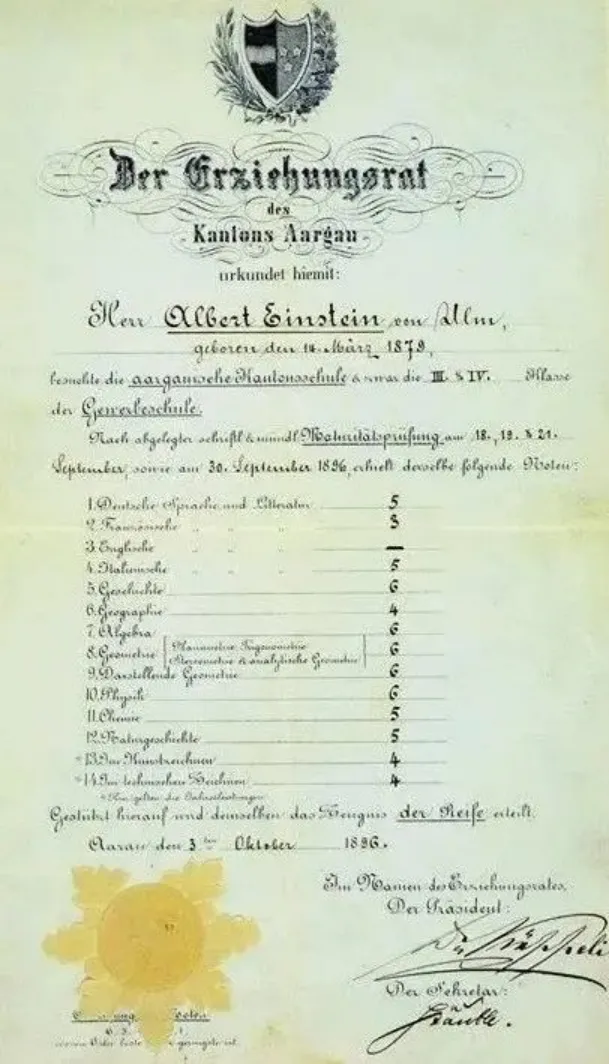 Der Erziehungsrat
des
Kantons Aargau
urkundet hiemit:
Herr Albert Einstein von Ulm,
geboren den 14. März 1879,
besuchte die aargauische Kantonsschule & zwar die III. & IV. Klasse
der Gewerbeschule.
Nach abgelegter schriftl. & mündl. Maturitätsprüfung am 18., 19. & 21.
September, sowie am 30. September 1896, erhielt derselbe folgende Noten:
1. Deutsche Sprache und Litteratur 5
2. Französische " " " 3
3. Englische " " " —
4. Italienische " " " 5
5. Geschichte 6
6. Geographie 4
7. Algebra 6
8. Geometrie (Planimetrie, Trigonometrie Stereometrie & analytische Geometrie) 6
9. Darstellende Geometrie 6
10. Physik 6
11. Chemie 5
12. Naturgeschichte 5
* 13. Im Kunstzeichnen 4
* 14. Im technischen Zeichnen 4
* Hier gelten die Jahresleistungen.
Gestützt hierauf wird demselben das Zeugnis der Reife erteilt.
Aarau den 3ten Oktober 1896.
Im Namen des Erziehungsrates,
Der Präsident:
Der Sekretär: